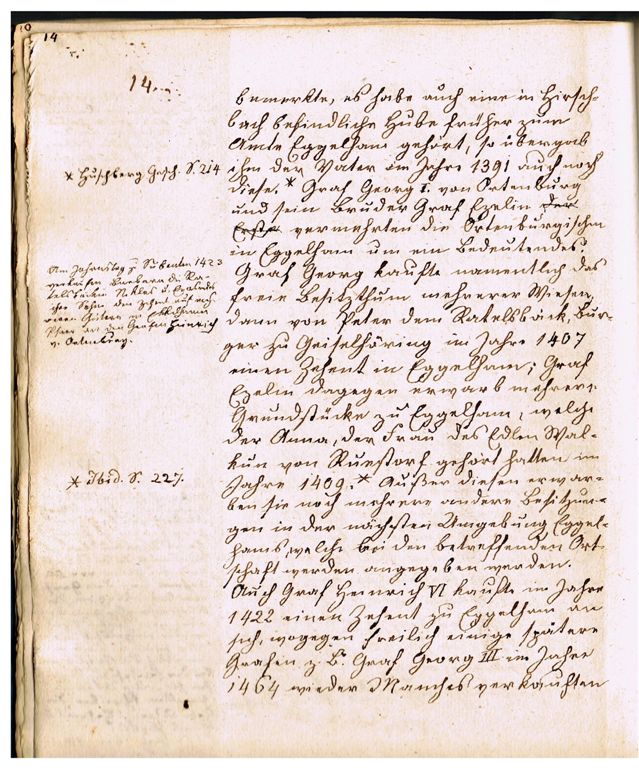 14
14.
bemerkte, es habe auch eine in Hirsch-
bach befindliche Hube früher zum
Amte Eggelham gehört, so übergab
ihm der Vater im Jahre 1391 auch noch
diese.* Graf Georg I. von Ortenburg
und sein Bruder Graf Ezelin der
Erste vermehrten die Ortenburgischen
in Eggelham um ein Bedeutendes.
Graf Georg kaufte namentlich das
freie Besitzthum mehrerer Wiesen,
dann von Peter dem Ratelsböck, Bür-
ger zu Geiselhöring im Jahre 1407
einen Zehent in Eggelham; Graf
Ezelin dagegen erwarb mehrere
Grundstücke zu Eggelham, welche
der Anna, der Frau des Edlen Wal-
kun von Ruestorf gehört hatten im
Jahre 1409.* Außer diesen erwar-
ben sie noch mehrere andere Besitzun-
gen in der nächsten Umgebung Eggel-
hams, welche bei den betreffenden Ort-
schaft werden angegeben werden.
Auch Graf Heinrich VI kaufte im Jahre
1422 einen Zehent zu Eggelham an
sich, wogegen freilich einige spätere
Grafen z. B. Graf Georg III im Jahre
1464 wieder Manches verkauften
* Huschberg Gesch. S. 214
Am 1423
verkaufen Barbara die Ra-
und
ihr Sohn den Zehent auf
Gütern in Eckelhamer
Pfarr an den Grafen Heinrich
v. Ortenburg.
* Ibid. S. 227.